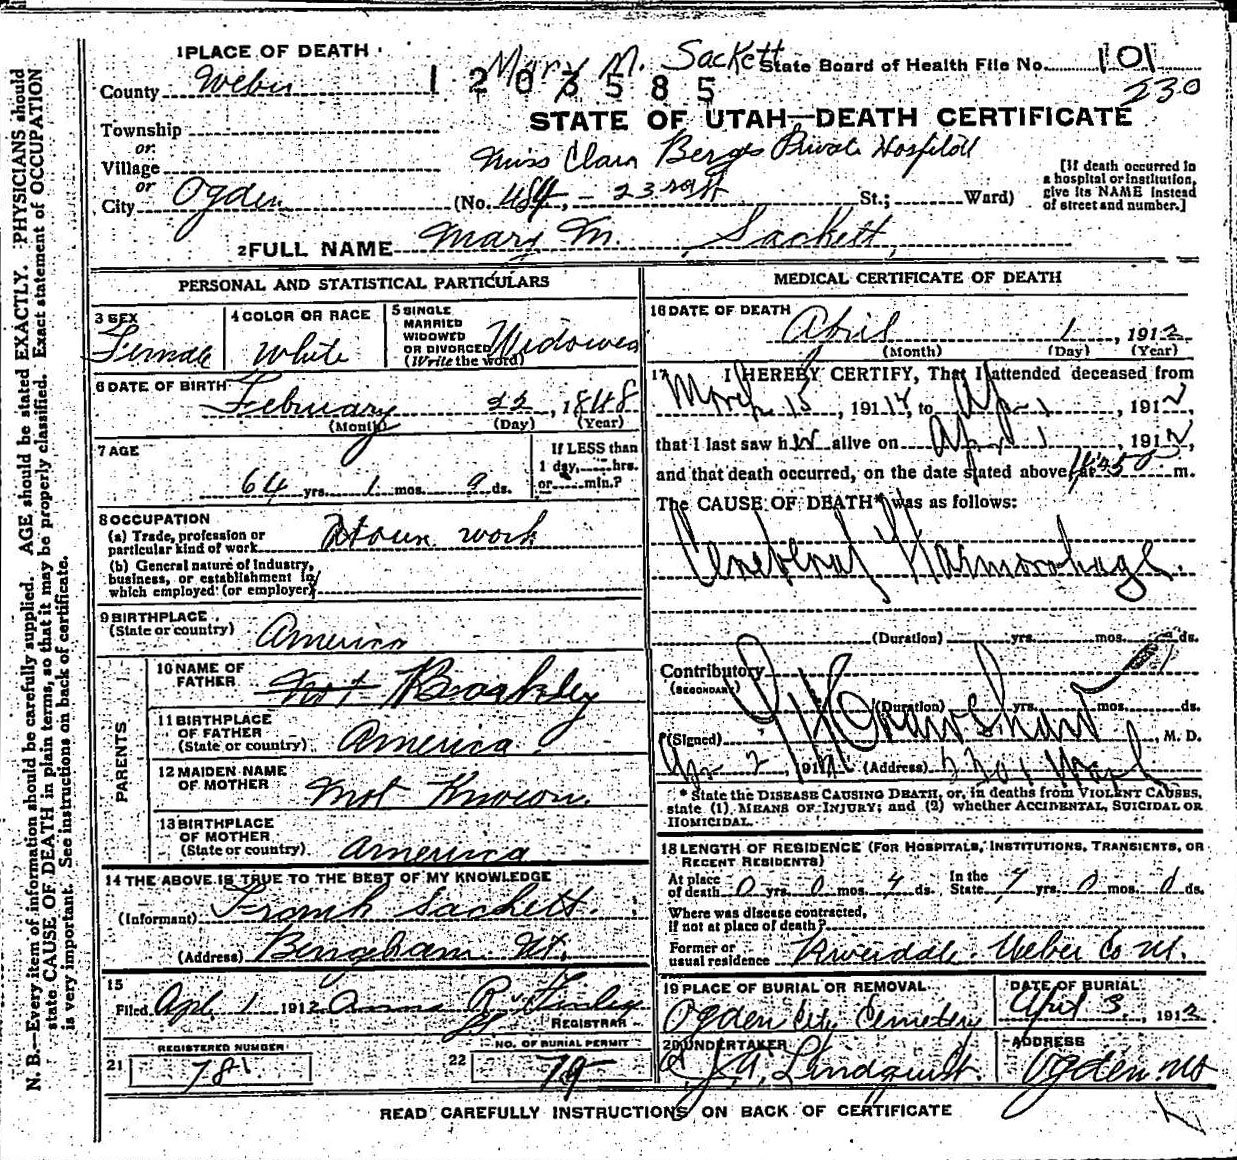 1 PLACE OF DEATH
Mary M. Sackett
State Board of Health File No. 101
County Weber
1 203585
230
STATE OF UTAH—DEATH CERTIFICATE
Township
or
Village
or
City Ogden
Miss Clara Bergs Private Hospital
(No. 484, - 23rd St St.; Ward)
[If death occurred in
a hospital or institution,
give its NAME instead
of street and number.]
2 FULL NAME Mary M. Sackett,
PERSONAL AND STATISTICAL PARTICULARS
3 SEX
Female
4 COLOR OR RACE
White
5 SINGLE
MARRIED
WIDOWED
OR DIVORCED
(Write the word)
Widowed
6 DATE OF BIRTH
February 22, 1848
(Month) (Day) (Year)
7 AGE
64 yrs. 1 mos. 9 ds.
If LESS than
1 day, hrs.
or min.?
8 OCCUPATION
(a) Trade, profession or
particular kind of work House work
(b) General nature of Industry,
business, or establishment in
which employed (or employer)
9 BIRTHPLACE
(State or country) America
PARENTS
10 NAME OF
FATHER Not Brackley
11 BIRTHPLACE
OF FATHER
(State or country) America.
12 MAIDEN NAME
OF MOTHER Not Known.
13 BIRTHPLACE
OF MOTHER
(State or country) America
14 THE ABOVE IS TRUE TO THE BEST OF MY KNOWLEDGE
(Informant) Frank Sackett.
(Address) Bingham Ut.
15
Filed Apl 1 1912 Anna R
REGISTRAR
REGISTERED NUMBER
21 781
NO. OF BURIAL PERMIT
22 79
MEDICAL CERTIFICATE OF DEATH
16 DATE OF DEATH
April 1, 1912
(Month) (Day) (Year)
17 I HEREBY CERTIFY, That I attended deceased from
March 15, 1912, to Ap 1, 1912,
that I last saw her alive on Apl 1, 1912,
and that death occurred, on the date stated above, at m.
The CAUSE OF DEATH* was as follows:
Cerebral Haemorrhage.
(Duration) yrs. mos. ds.
Contributory
(SECONDARY)
(Duration) yrs. mos. ds.
(Signed) , M. D.
Apr 2, 1912 (Address) Wash
* State the DISEASE CAUSING DEATH, or, in deaths from VIOLENT CAUSES,
state (1) MEANS OF INJURY; and (2) whether ACCIDENTAL, SUICIDAL OR
HOMICIDAL.
18 LENGTH OF RESIDENCE (FOR HOSPITALS, INSTITUTIONS, TRANSIENTS, OR
RECENT RESIDENTS)
At place
of death 0 yrs. 0 mos. 4 ds. In the
State 7 yrs. 0 mos. 0 ds.
Where was disease contracted,
if not at place of death?
Former or
usual residence Riverdale. Weber Co Ut.
19 PLACE OF BURIAL OR REMOVAL
Ogden City Cemetery
DATE OF BURIAL
April 3, 1912
20 UNDERTAKER
Lindquist.
ADDRESS
Ogden Ut
READ CAREFULLY INSTRUCTIONS ON BACK OF CERTIFICATE
N. B.—Every item of information should be carefully supplied. AGE should be stated EXACTLY. PHYSICIANS should
state CAUSE OF DEATH in plain terms, so that it may be properly classified. Exact statement of OCCUPATION
is very important. See instructions on back of certificate.